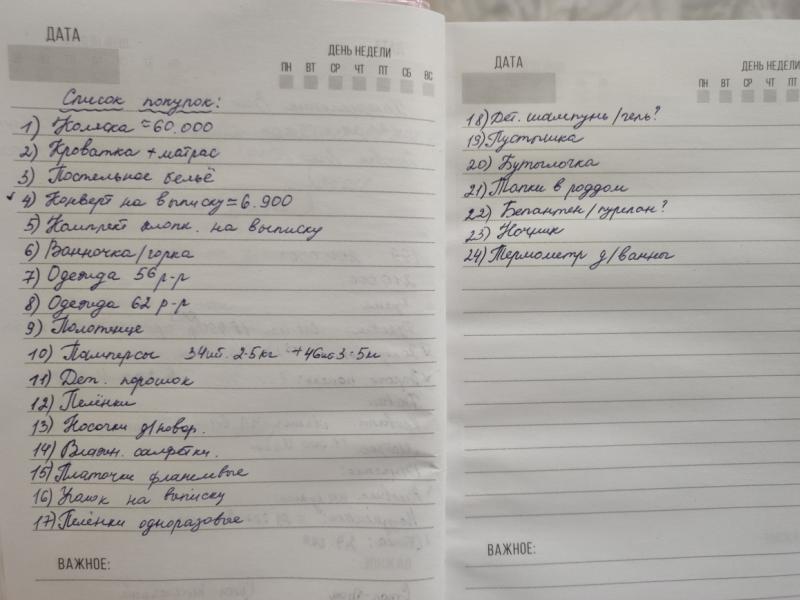 ДАТА
ДЕНЬ НЕДЕЛИ
ПН ВТ СР ЧТ ПТ СБ ВС
Список покупок:
1) Коляска ≈60.000
2) Кроватка + матрас
3) Постельное бельё
4) Конверт на выписку ≈ 6.900
5) Комплект хлопк. на выписку
6) Ванночка/горка
7) Одежда 56 р-р
8) Одежда 62 р-р
9) Полотенце
10) Памперсы 34шт. 2-5кг + 46шт 3-5кг
11) Дет. порошок
12) Пелёнки
13) Носочки д/новор.
14) Влажн. салфетки.
15) Платочки фланелевые
16) Уголок на выписку
17) Пелёнки одноразовые
ВАЖНОЕ:
ДАТА
ДЕНЬ НЕДЕЛИ
ПН ВТ СР ЧТ ПТ
18) Дет. шампунь/гель?
19) Пустышка
20) Бутылочка
21) Тапки в роддом
22) Бепантен/пурелан?
23) Ночник
24) Термометр д/ванны
ВАЖНОЕ: